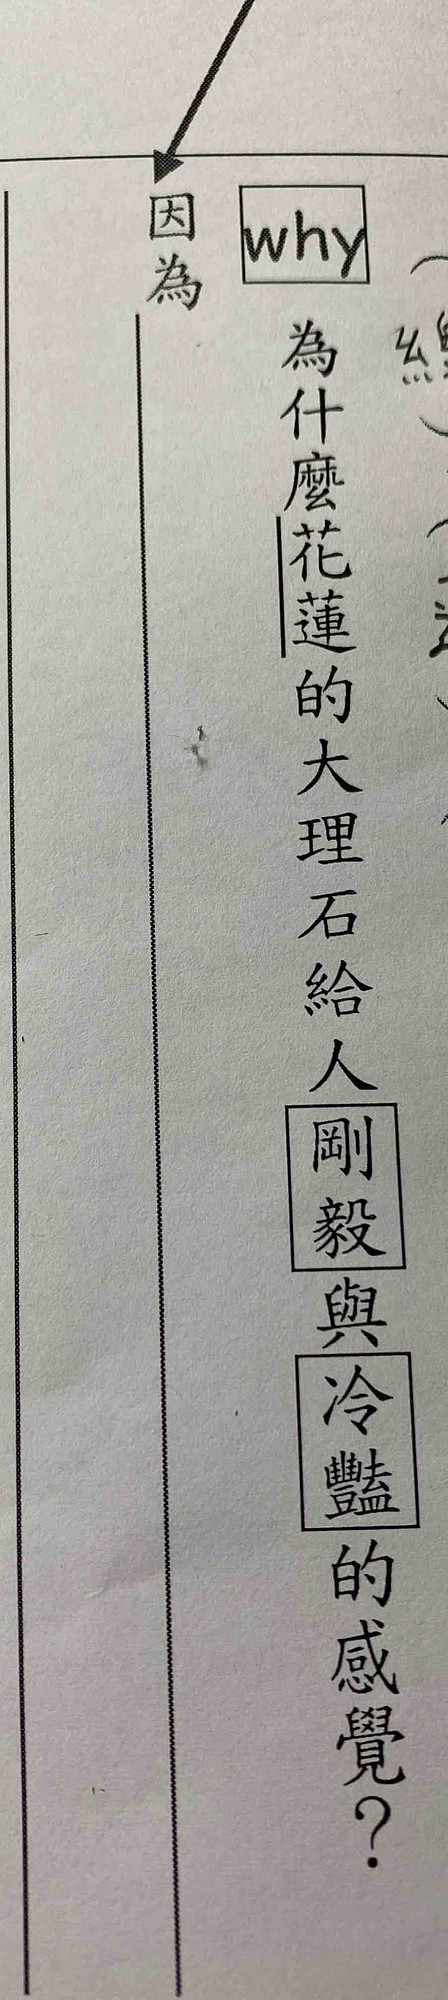 why
為什麼花蓮的大理石給人剛毅與冷豔的感覺？
因為